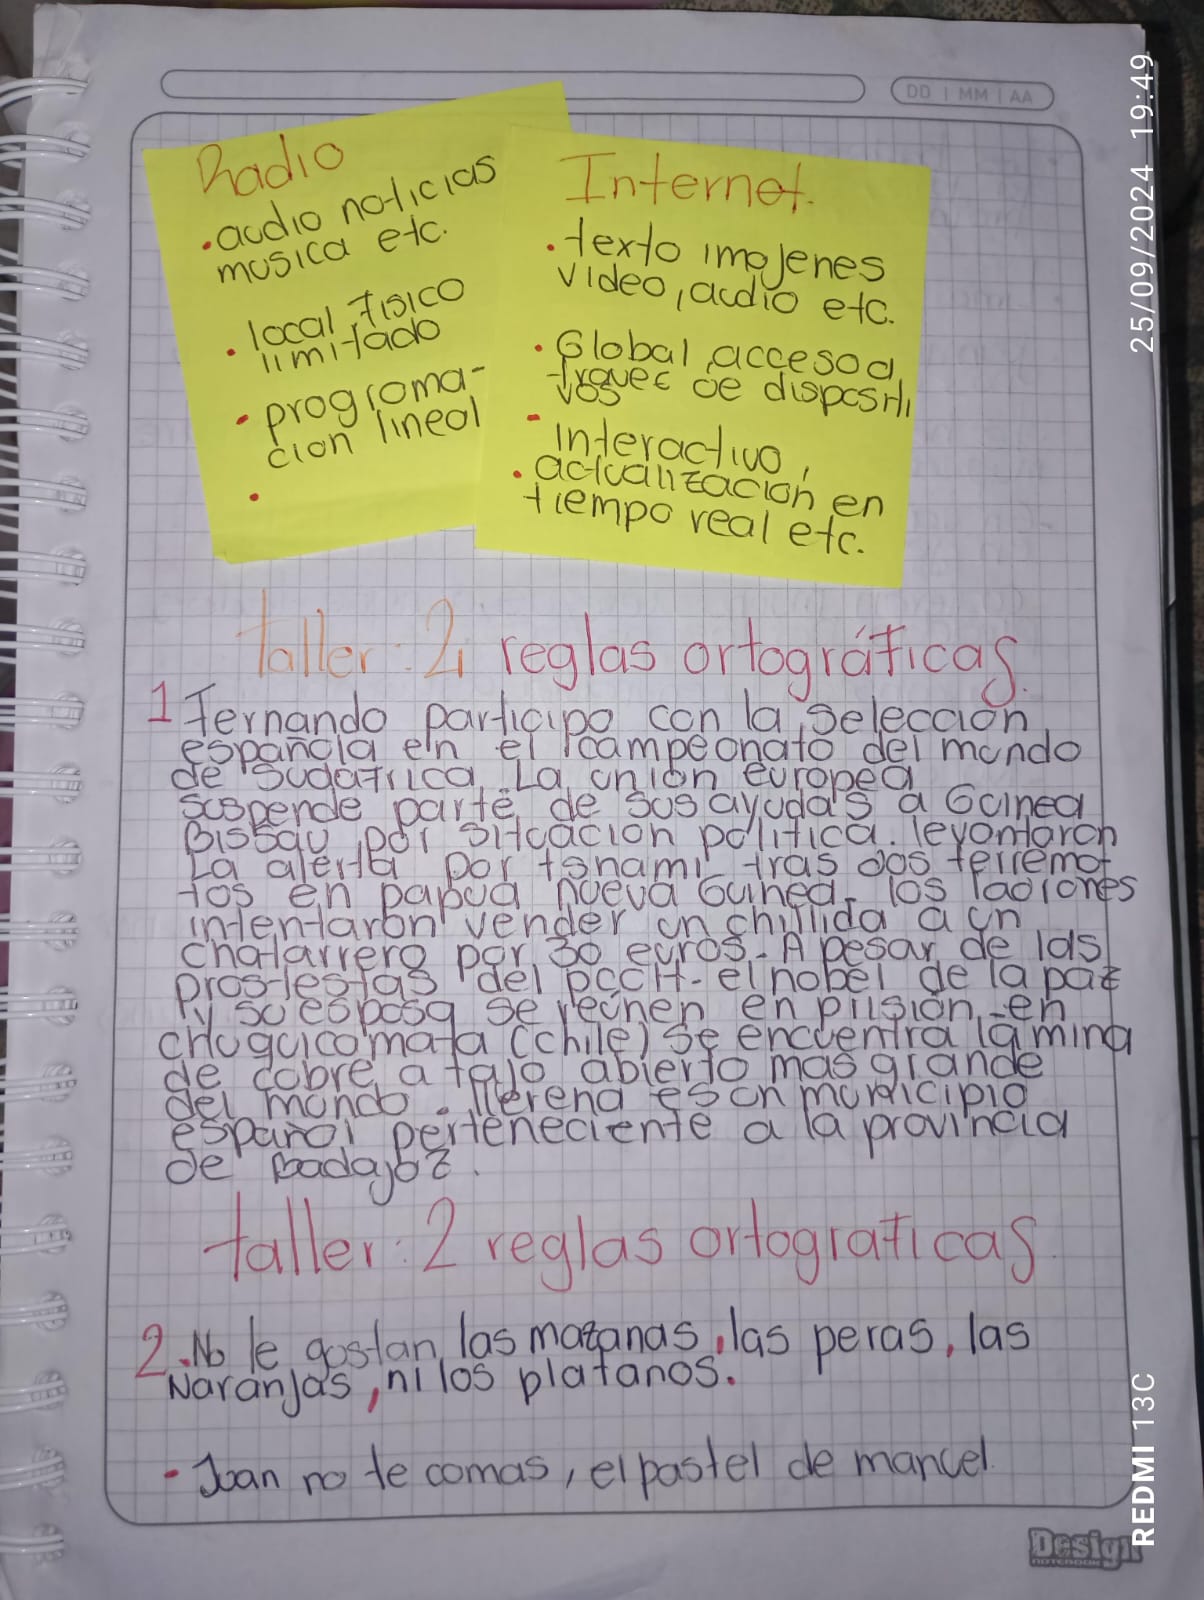 DD | MM | AA
Radio
• audio noticias
musica etc.
• local fisico
limitado
• programa-
cion lineal
•
Internet.
• texto imajenes
video, audio etc.
• Global acceso a
travec de dispositi
vos
- interactivo,
• actualización en
tiempo real etc.
taller: 2, reglas ortográficas.
1 Fernando participo con la selección
española en el campeonato del mundo
de sudafrica. La unión europea
suspende parte de sus ayudas a Guinea
Bissau por situacion politica. levantaron
La alerta por tsnami tras dos terremo-
tos en papua nueva Guinea. los ladrones
intentaron vender un chillida a un
chatarrero por 30 euros. A pesar de las
prostestas del pcch. el nobel de la paz
y su esposa se reúnen en prision. en
chuquicamata (chile) se encuentra la mina
de cobre a tajo abierto mas grande
del mundo. llerena es un municipio
español perteneciente a la provincia
de badajoz.
taller: 2 reglas ortograficas.
2. No le gustan las mazanas, las peras, las
Naranjas, ni los platanos.
- Juan no te comas, el pastel de manuel.
Design
NOTEBOOK
25/09/2024 19:49
REDMI 13C